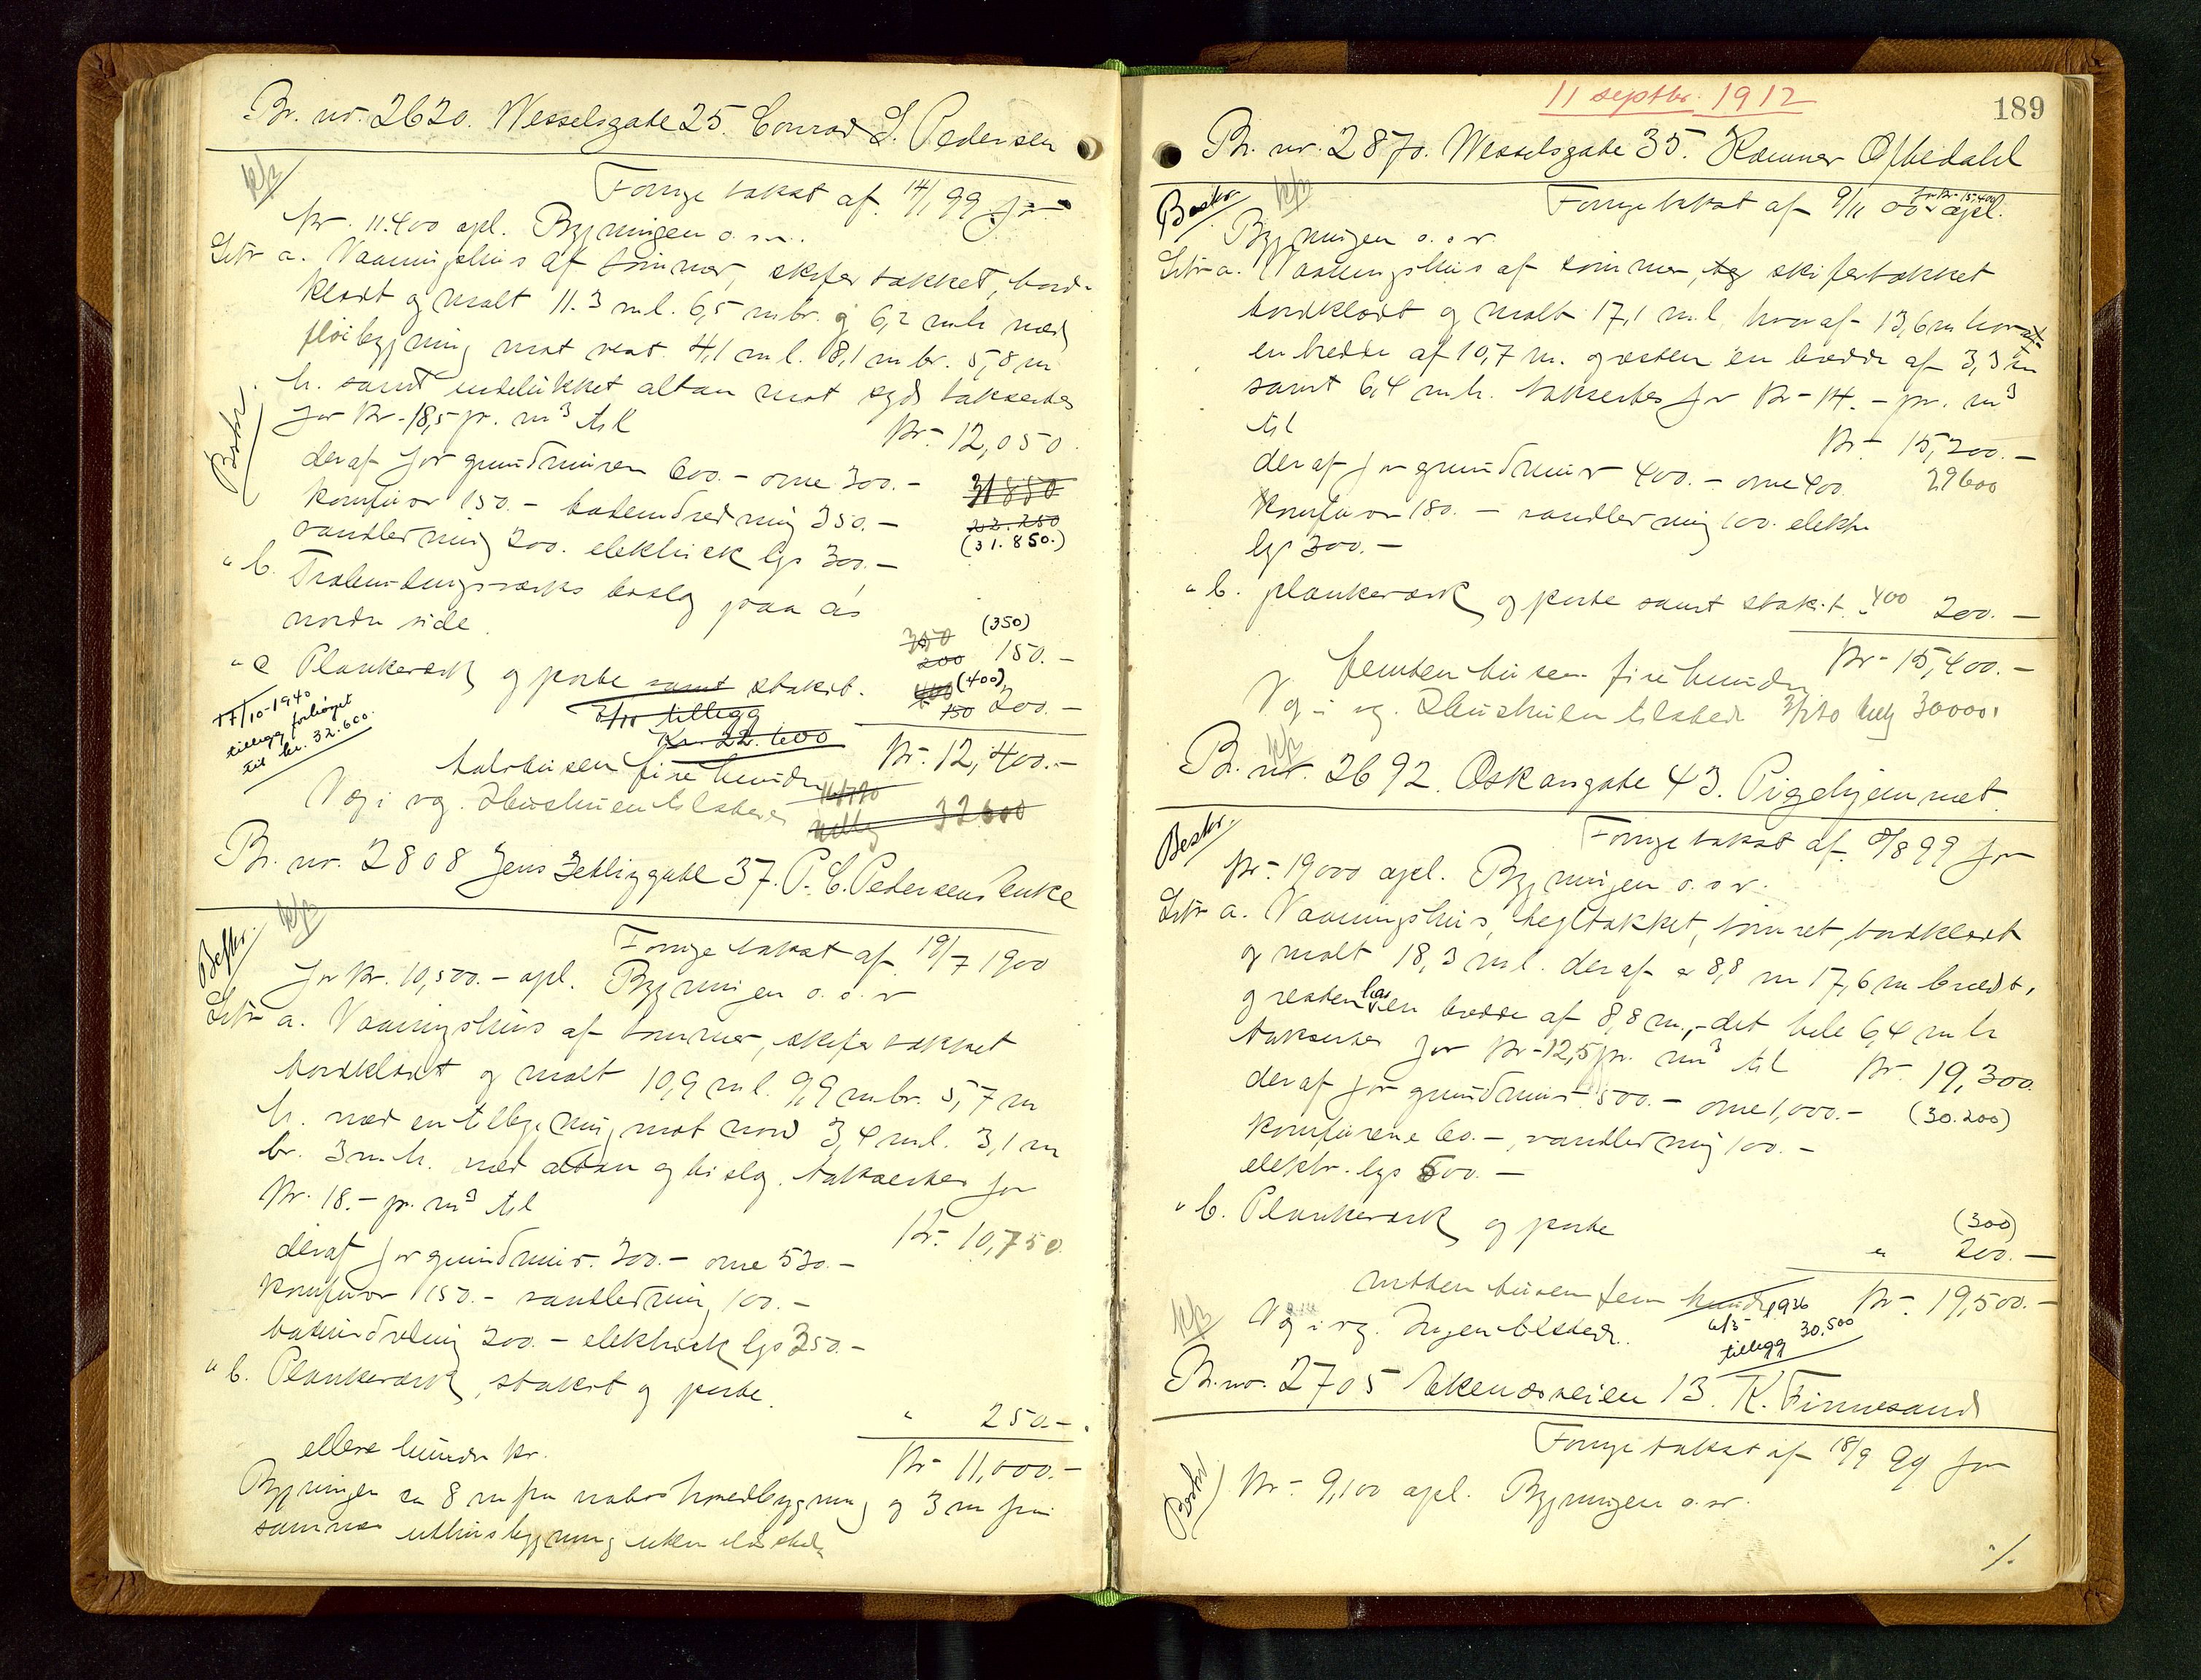 Br. nr. 2620. Wesselsgate 25. Conrad S. Pedersen
Forrige takst af 14/1 99 for
Kr. 11.400 opl. Bygningen o. s. v.
Litr a. Vaaningshus af tømmer, skifertækket, bord-
klædt og malt 11.3 m l. 6,5 m br. og 6,2 m h med
fløibygning mot vest 4,1 m l. 8,1 m br. 5,8 m
h. samt indelukket altan mot syd takseres
for Kr. 18,5 pr. m³ til
Kr. 12,050
Beskr.
deraf for grundmuren 600.- ovne 300.-
31880
komfur 150.- badeindredning 350.-
22.250
vandledning 200. elektrisk lys 300.-
(31.850.)
" b.
nordre side.
(350)
350
200 150.-
" c Plankeværk og porte samt stakit.
(400)
150 200.-
17/10-1940
tillegg forhøiet
til kr. 32.600.
tillegg
Kr. 22.600
Kr. 12,400.-
tolvtusen fire hundre
V og i og. Ildslukn tilstede
32600
Br. nr. 2808 Jens Zetlizgate 37. P. C. Pedersens Enke
Forrige takst af 19/7 1900
Beskr.
for Kr. 10,500.- opl. Bygningen o. s. v
Litr a. Vaaningshus af tømmer, skifertækket
bordklædt og malt 10,9 m l. 9,9 m br. 5,7 m
h. med en tilbygning mot nord 3,4 m l. 3,1 m
br. 3 m h. med altan og bislag. takseres for
Kr. 18.- pr. m³ til
Kr. 10,750
deraf for grundmur 300.- ovne 530.-
komfur 150.- vandledning 100.-
badeindredning 200.- elektrisk lys 350.-
" b. Plankeværk, stakit og porte.
" 250.-
Kr. 11,000.-
elleve tusen kr.
Bygningen er 8 m fra nabos hovedbygning og 3 m fra
sammes uthusbygning uten ildsted
11 septbr. 1912
189
Br. nr. 2870. Wesselsgate 35. Kæmner Oftedahl
Beskr.
Forrige takst af 9/11 00 for Kr. 15,400 opl.
Bygningen o. s. v
Litr a. Vaaningshus af tømmer, skifertækket
bordklædt og malt 17,1 m l hvoraf 13,6 m hvorav
en bredde af 10,7 m. og resten en bredde af 3,3 m
samt 6,4 m h. takseres for Kr. 14.- pr. m³
til
Kr. 15,200.-
deraf for grundmur 400.- ovne 400
29600
komfur 180.- vandledning 100. elektr
lys 300.-
" b. plankeværk og porte samt stakit. " 400 200.-
Kr. 15,400.-
femten tusen fire hundre
V og i og. Ildslukn tilstede 30000.
Br. nr. 2692. Oskarsgate 43. Pigehjemmet
Beskr.
Forrige takst af 8/8 99 for
Kr. 19000 opl. Bygningen o. s. v.
Litr a. Vaaningshus, tegltækket, tømret, bordklædt
og malt 18,3 m l. deraf er 8,8 m 17,6 m bredt,
og resten har en bredde af 8,8 m., det hele 6,4 m h
takseres for Kr. 12,5 pr. m³ til
Kr. 19,300
deraf for grundmur 500.- ovne 1,000.-
(30.200)
komfurene 60.-, vandledning 100.-
elektr. lys 500.-
" b. Plankeværk og porte
(300)
" 200.-
Kr. 19,500.-
nitten tusen fem hundre
V og i og. Ingen tilstede.
6/3 1926
tillegg 30,500
Br. nr. 2705 Ekenæsveien 13. K. Finnesand
Forrige takst af 18/9 99 for
Beskr.
Kr. 9,100 opl. Bygningen o. s. v.
./.